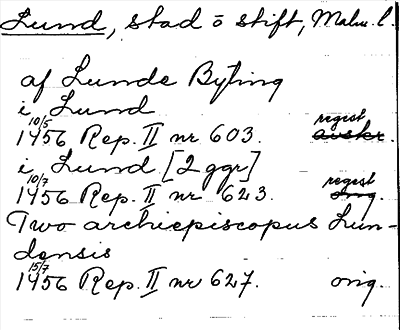 Lund, stad o stift, Malm. l.
af Lunde Byting
i Lund
10/5 1456 Rep. II nr 603. regest avskr.
i Lund [2 ggr]
10/7 1456 Rep. II nr 623. regest orig.
Two archiepiscopus Lun-
densis
15/7 1456 Rep. II nr 627. orig.